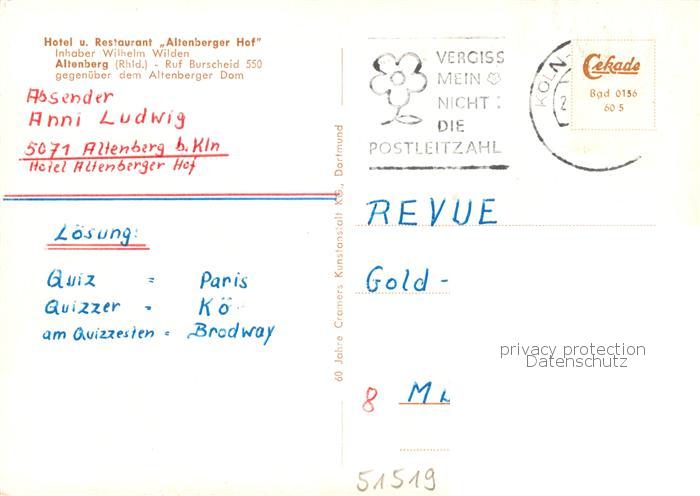 Hotel u. Restaurant „Altenberger Hof"
Inhaber Wilhelm Wilden
Altenberg (Rhld.) - Ruf Burscheid 550
gegenüber dem Altenberger Dom
Absender
Anni Ludwig
5071 Altenberg b. Kln
Hotel Altenberger Hof
Lösung:
Quiz = Paris
Quizzer = Kö
am Quizzesten = Brodway
60 Jahre Cramers Kunstanstalt KG., Dortmund
VERGISS
MEIN
NICHT :
DIE
POSTLEITZAHL
KÖLN
Cekade
Bgd 0156
60 5
REVUE
Gold -
privacy protection
Datenschutz
8 M
51519